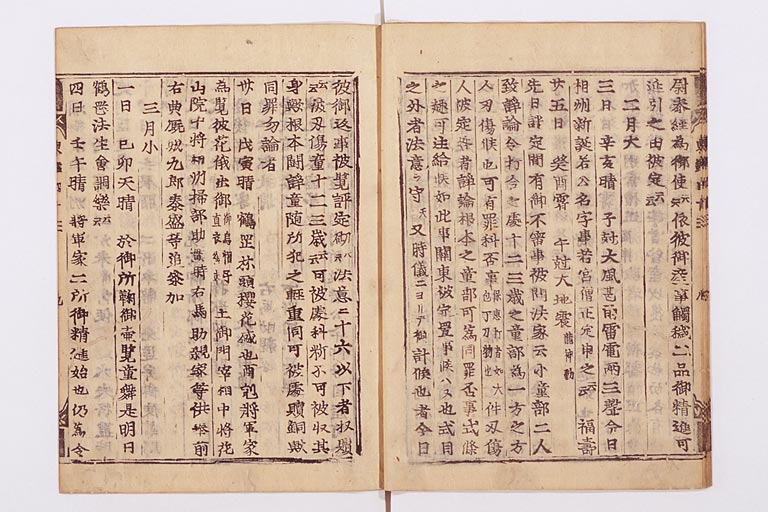 尉泰経為御使云々依彼御産事觸穢二品御精進可
延引之由被定云々
二月大
三日 辛亥晴 子刻大風甚雨雷電両三聲今日
相州新誕若公名字事若宮僧正定申之云々 福壽
廿五日 癸酉霽 午尅大地震 龍神動
先日評定間有御不審事被問法家云小童部二人
致諍論令打合之處十二三歳之童部為一方之方
人刃傷候也可有罪科否事 件刃傷
人被定左者諍論根本之童部可為同罪否事式條
之趣可注給状如此事関東被定置事候ハ又也式目
之外者法意之守天又時儀ニヨリテ相計候也者今日
彼御返事被覧評定砌法意ニ十六以下者収贖
云々被刃傷童十二三歳云々可被處科断不可被収其
身歟根本闘諍童随所犯之軽重同可被處贖銅歟
同罪勿論者
廿日 戊寅晴 鶴岡林頭櫻花盛也酉尅将軍家
為覧彼花俄出御 土御門宰相中将花
山院中将相州掃部助時右馬助親家等供奉前
右典厩秋九郎泰盛等追参加
三月小
一日 己卯天晴 於御所鞠御壷覧童舞是明日
鶴岳法生會調樂云々
四日 壬午晴 将軍家二所御精進始也仍為令